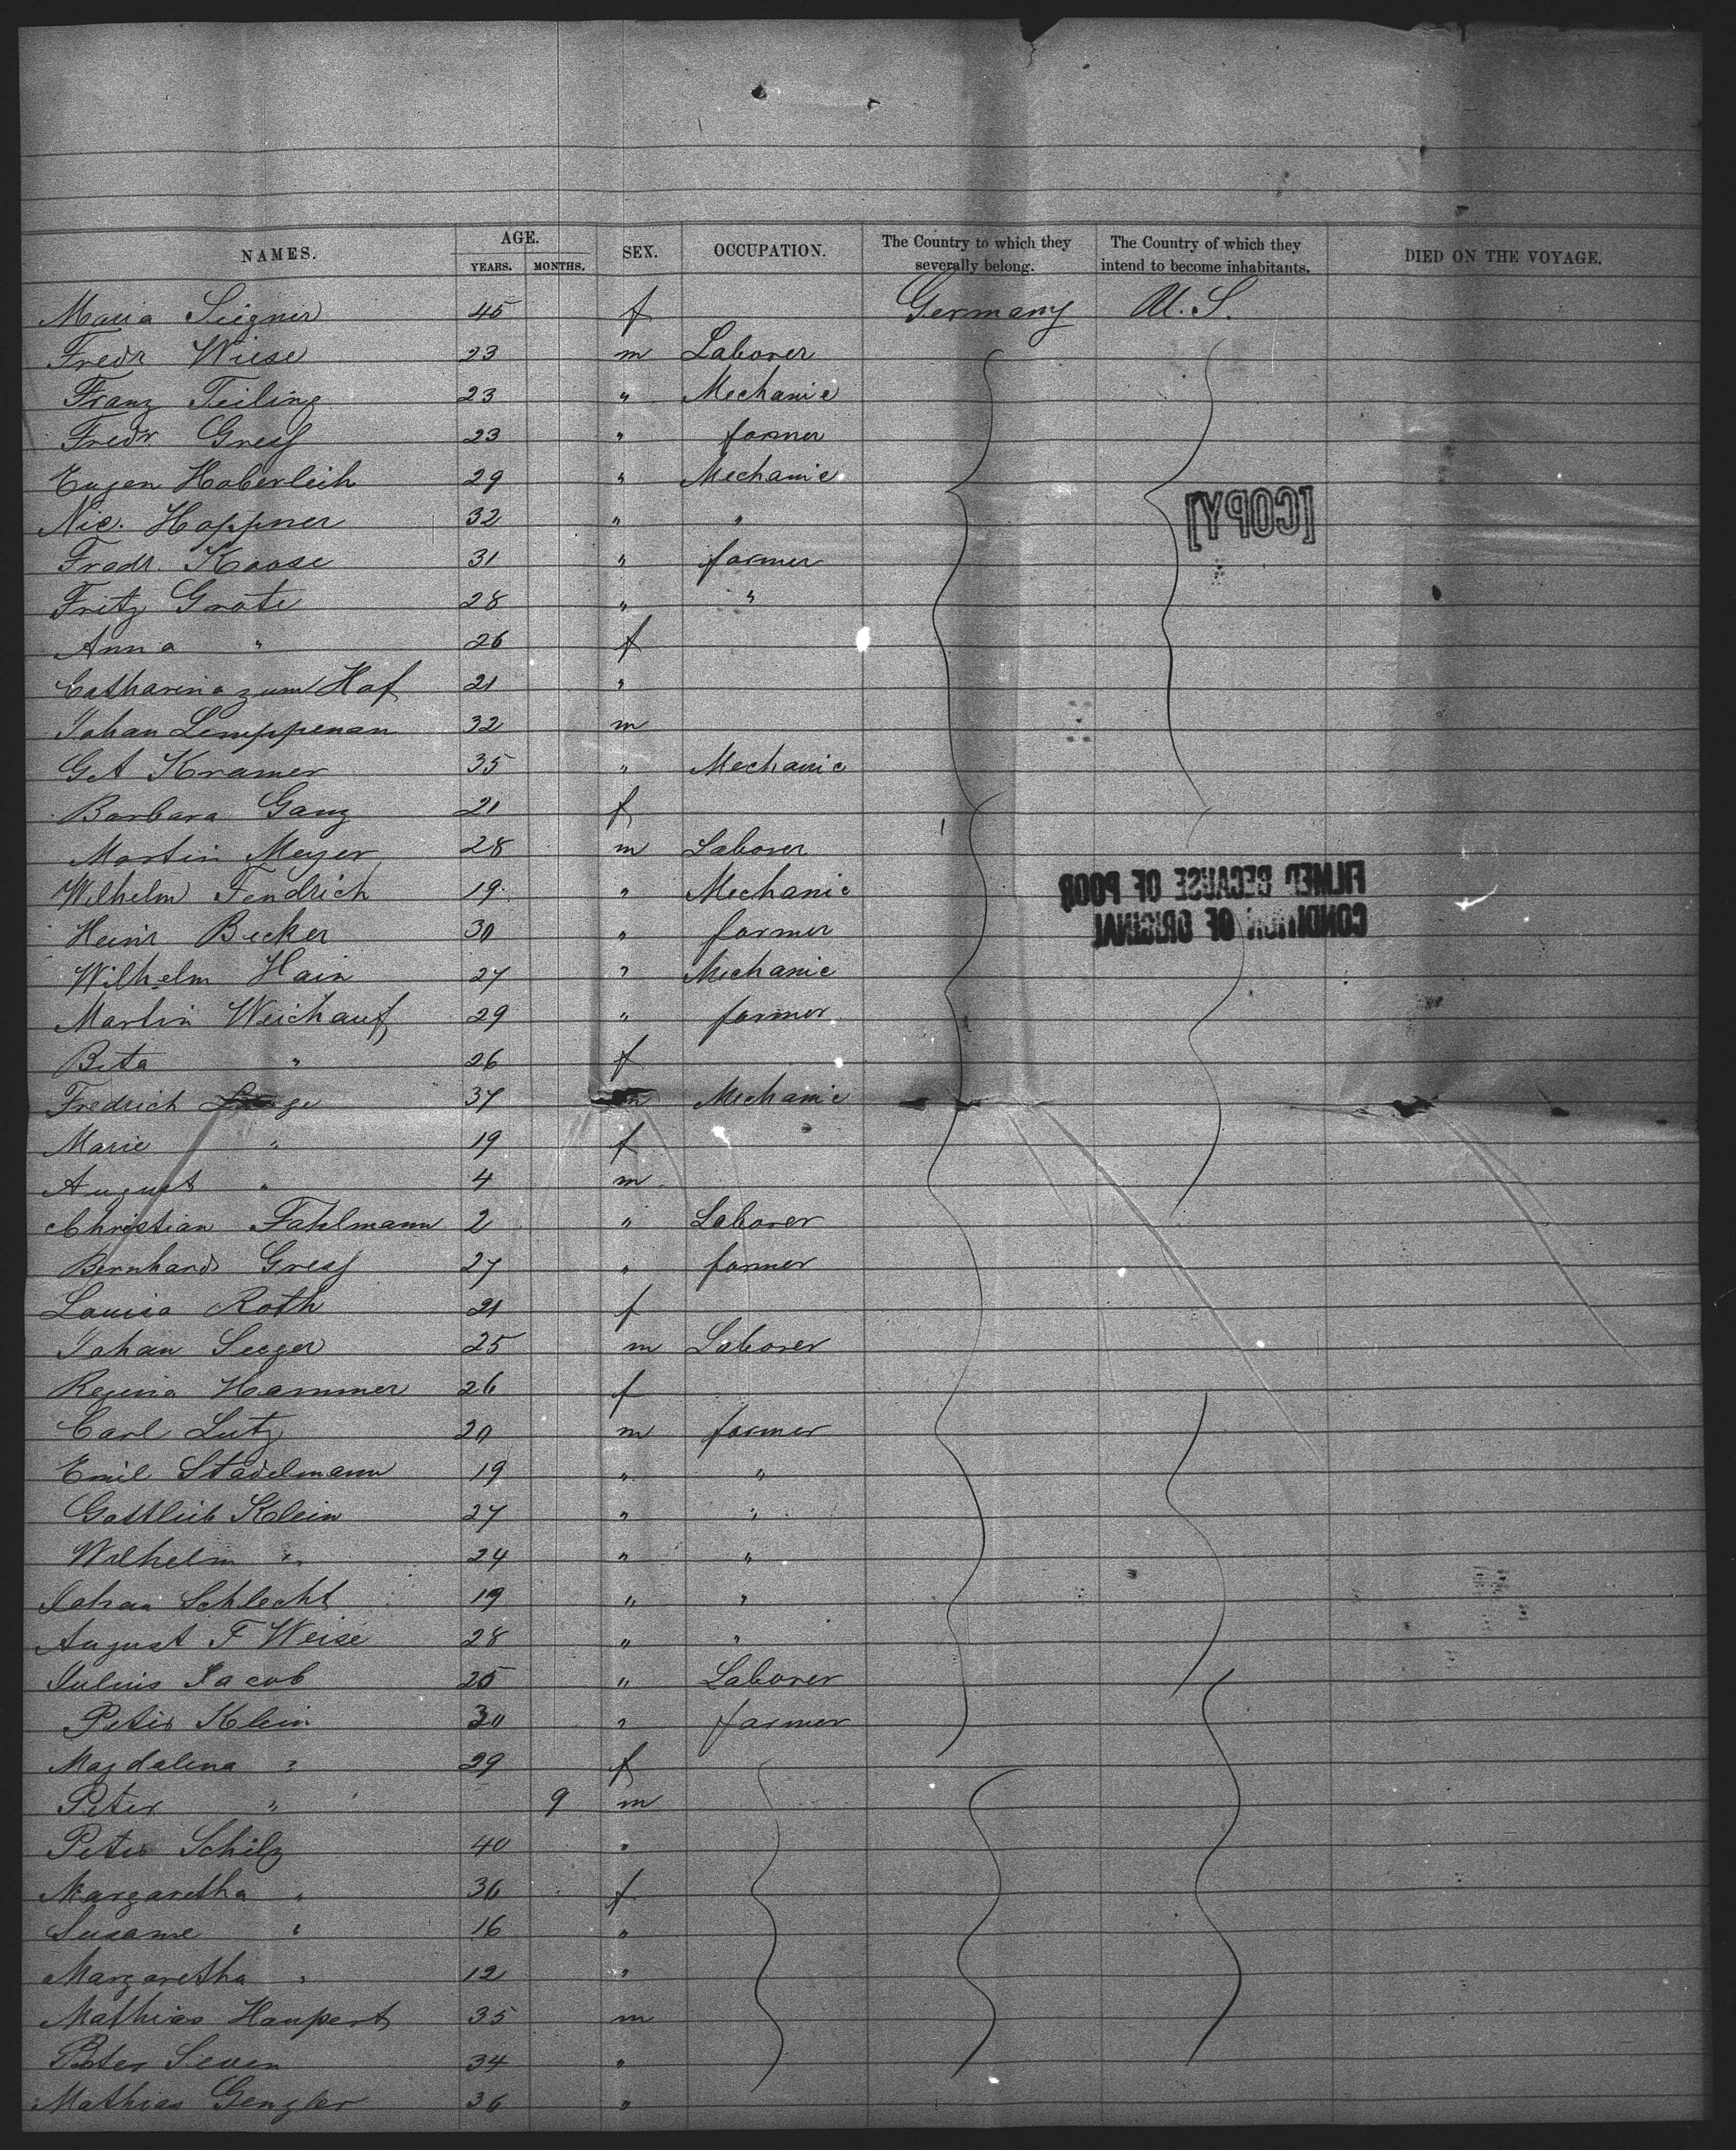 NAMES. AGE. YEARS. MONTHS. SEX. OCCUPATION. The Country to which they severally belong. The Country of which they intend to become inhabitants. DIED ON THE VOYAGE.
Maria Siegner 45 f Germany U.S.
Fredr Wiese 23 m Laborer
Franz Teiling 23 " Mechanic
Fredr. Gress 23 " farmer
Eugen Haberleih 29 " Mechanic
Nic. Hoppner 32 " "
Fredr. Kaase 31 " farmer
Fritz Grote 28 " "
Anna " 26 f
Catharina zum Hof 21 "
Johan Lemppenan 32 m
G A Kramer 35 " Mechanic
Barbara Ganz 21 f
Martin Meyer 28 m Laborer
Wilhelm Fendrich 19 " Mechanic
Heinr Becker 30 " farmer
Wilhelm Hain 27 " Mechanic
Martin Weichauf 29 " farmer
Beta " 26 f
Fredrich 37 m Mechanic
Marie " 19 f
August " 4 m
Christian Fahlmann 2 " Laborer
Bernhard Gress 27 " farmer
Louisa Roth 21 f
Johan Seeger 25 m Laborer
Regina Hammer 26 f
Carl Lutz 20 m farmer
Emil Stadelmann 19 " "
Gottlieb Klein 27 " "
Wilhelm " 24 " "
Johan Schlecht 19 " "
August F Weise 28 " "
Julius Jacob 25 " Laborer
Peter Klein 30 " farmer
Magdalena " 29 f
Peter " 9 m
Peter Schilz 40 "
Margaretha " 36 f
Susanne " 16 "
Margaretha " 12 "
Mathias Haupert 35 m
Peter Seven 34 "
Mathias Gengler 36 "
[COPY]
FILMED BECAUSE OF POOR
CONDITION OF ORIGINAL